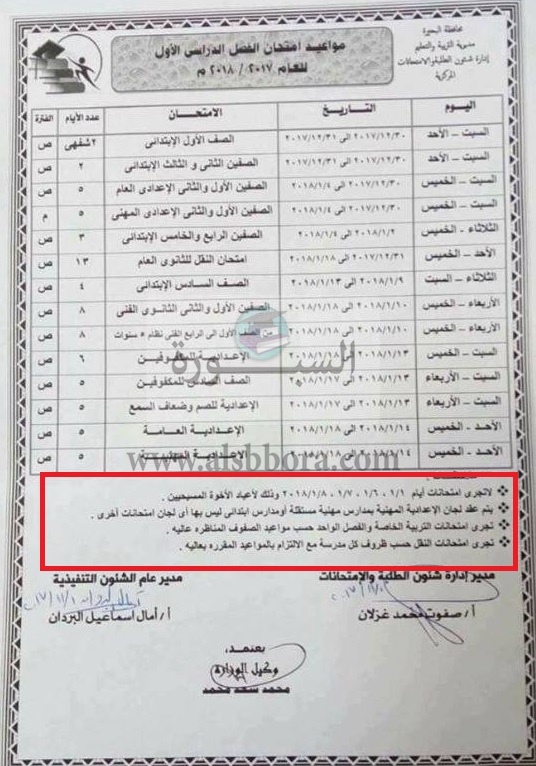 محافظة البحيرة
مديرية التربية والتعليم
إدارة شئون الطلبة والامتحانات
المركزية
مواعيد امتحان الفصل الدراسى الأول
للعام ٢٠١٧ / ٢٠١٨ م
اليوم التاريخ الامتحان عدد الأيام الفترة
السبت – الأحد ٢٠١٧/١٢/٣٠ الى ٢٠١٧/١٢/٣١ الصف الأول الإبتدائى ٢ شفهى ص
السبت – الأحد ٢٠١٧/١٢/٣٠ الى ٢٠١٧/١٢/٣١ الصفين الثانى و الثالث الإبتدائى ٢ ص
السبت – الخميس ٢٠١٧/١٢/٣٠ الى ٢٠١٨/١/٤ الصفين الأول والثانى الإعدادى العام ٥ ص
السبت – الخميس ٢٠١٧/١٢/٣٠ الى ٢٠١٨/١/٤ الصفين الأول والثانى الإعدادى المهنى ٥ م
الثلاثاء - الخميس ٢٠١٨/١/٢ الى ٢٠١٨/١/٤ الصفين الرابع والخامس الإبتدائى ٣ ص
الأحد – الخميس ٢٠١٧/١٢/٣١ الى ٢٠١٨/١/١٨ امتحان النقل للثانوى العام ١٣ ص
الثلاثاء – السبت ٢٠١٨/١/٩ الى ٢٠١٨/١/١٣ الصف السادس الإبتدائى ٤ ص
الأربعاء - الخميس ٢٠١٨/١/١٠ الى ٢٠١٨/١/١٨ الصفين الأول والثانى الثانوى الفنى ٨ ص
الأربعاء - الخميس ٢٠١٨/١/١٠ الى ٢٠١٨/١/١٨ من الصف الأول الى الرابع الفنى نظام ٥ سنوات ٨ ص
السبت – الخميس ٢٠١٨/١/١٣ الى ٢٠١٨/١/١٨ الإعدادية للمكفوفين ٦ ص
السبت – الأربعاء ٢٠١٨/١/١٣ الى ٢٠١٨/١/١٧ الصف السادس للمكفوفين ٥ ص
السبت – الأربعاء ٢٠١٨/١/١٣ الى ٢٠١٨/١/١٧ الإعدادية للصم وضعاف السمع ٥ ص
الأحد - الخميس ٢٠١٨/١/١٤ الى ٢٠١٨/١/١٨ الإعدادية العامة ٥ ص
الأحد - الخميس ٢٠١٨/١/١٤ الى ٢٠١٨/١/١٨ الإعدادية المهنية ٥ ص
السبورة
www.alsbbora.com
لاتجرى امتحانات أيام ١/١ ، ١/٦ ، ١/٧ ، ٢٠١٨/١/٨ وذلك لأعياد الأخوة المسيحيين .
يتم عقد لجان الإعدادية المهنية بمدارس مهنية مستقلة أومدارس ابتدائى ليس بها أى لجان امتحانات أخرى .
تجرى امتحانات التربية الخاصة والفصل الواحد حسب مواعيد الصفوف المناظره عاليه .
تجرى امتحانات النقل حسب ظروف كل مدرسة مع الالتزام بالمواعيد المقرره بعاليه .
مدير إدارة شئون الطلبة والإمتحانات
مدير عام الشئون التنفيذية
أ/ صفوت محمد غزلان
أ/ أمال اسماعيل البردان
يعتمد،
وكيل الوزارة
محمد سعد محمد